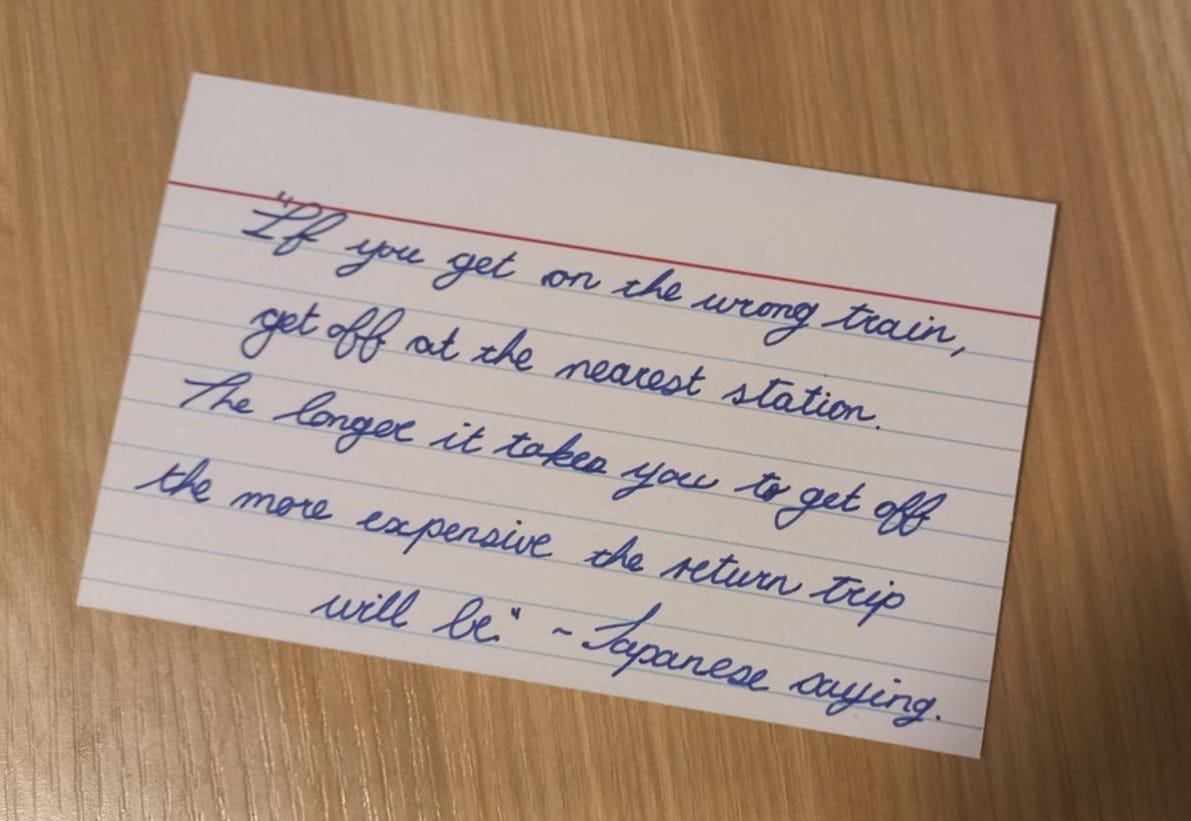 "If you get on the wrong train,
get off at the nearest station.
The longer it takes you to get off
the more expensive the return trip
will be." ~ Japanese saying.